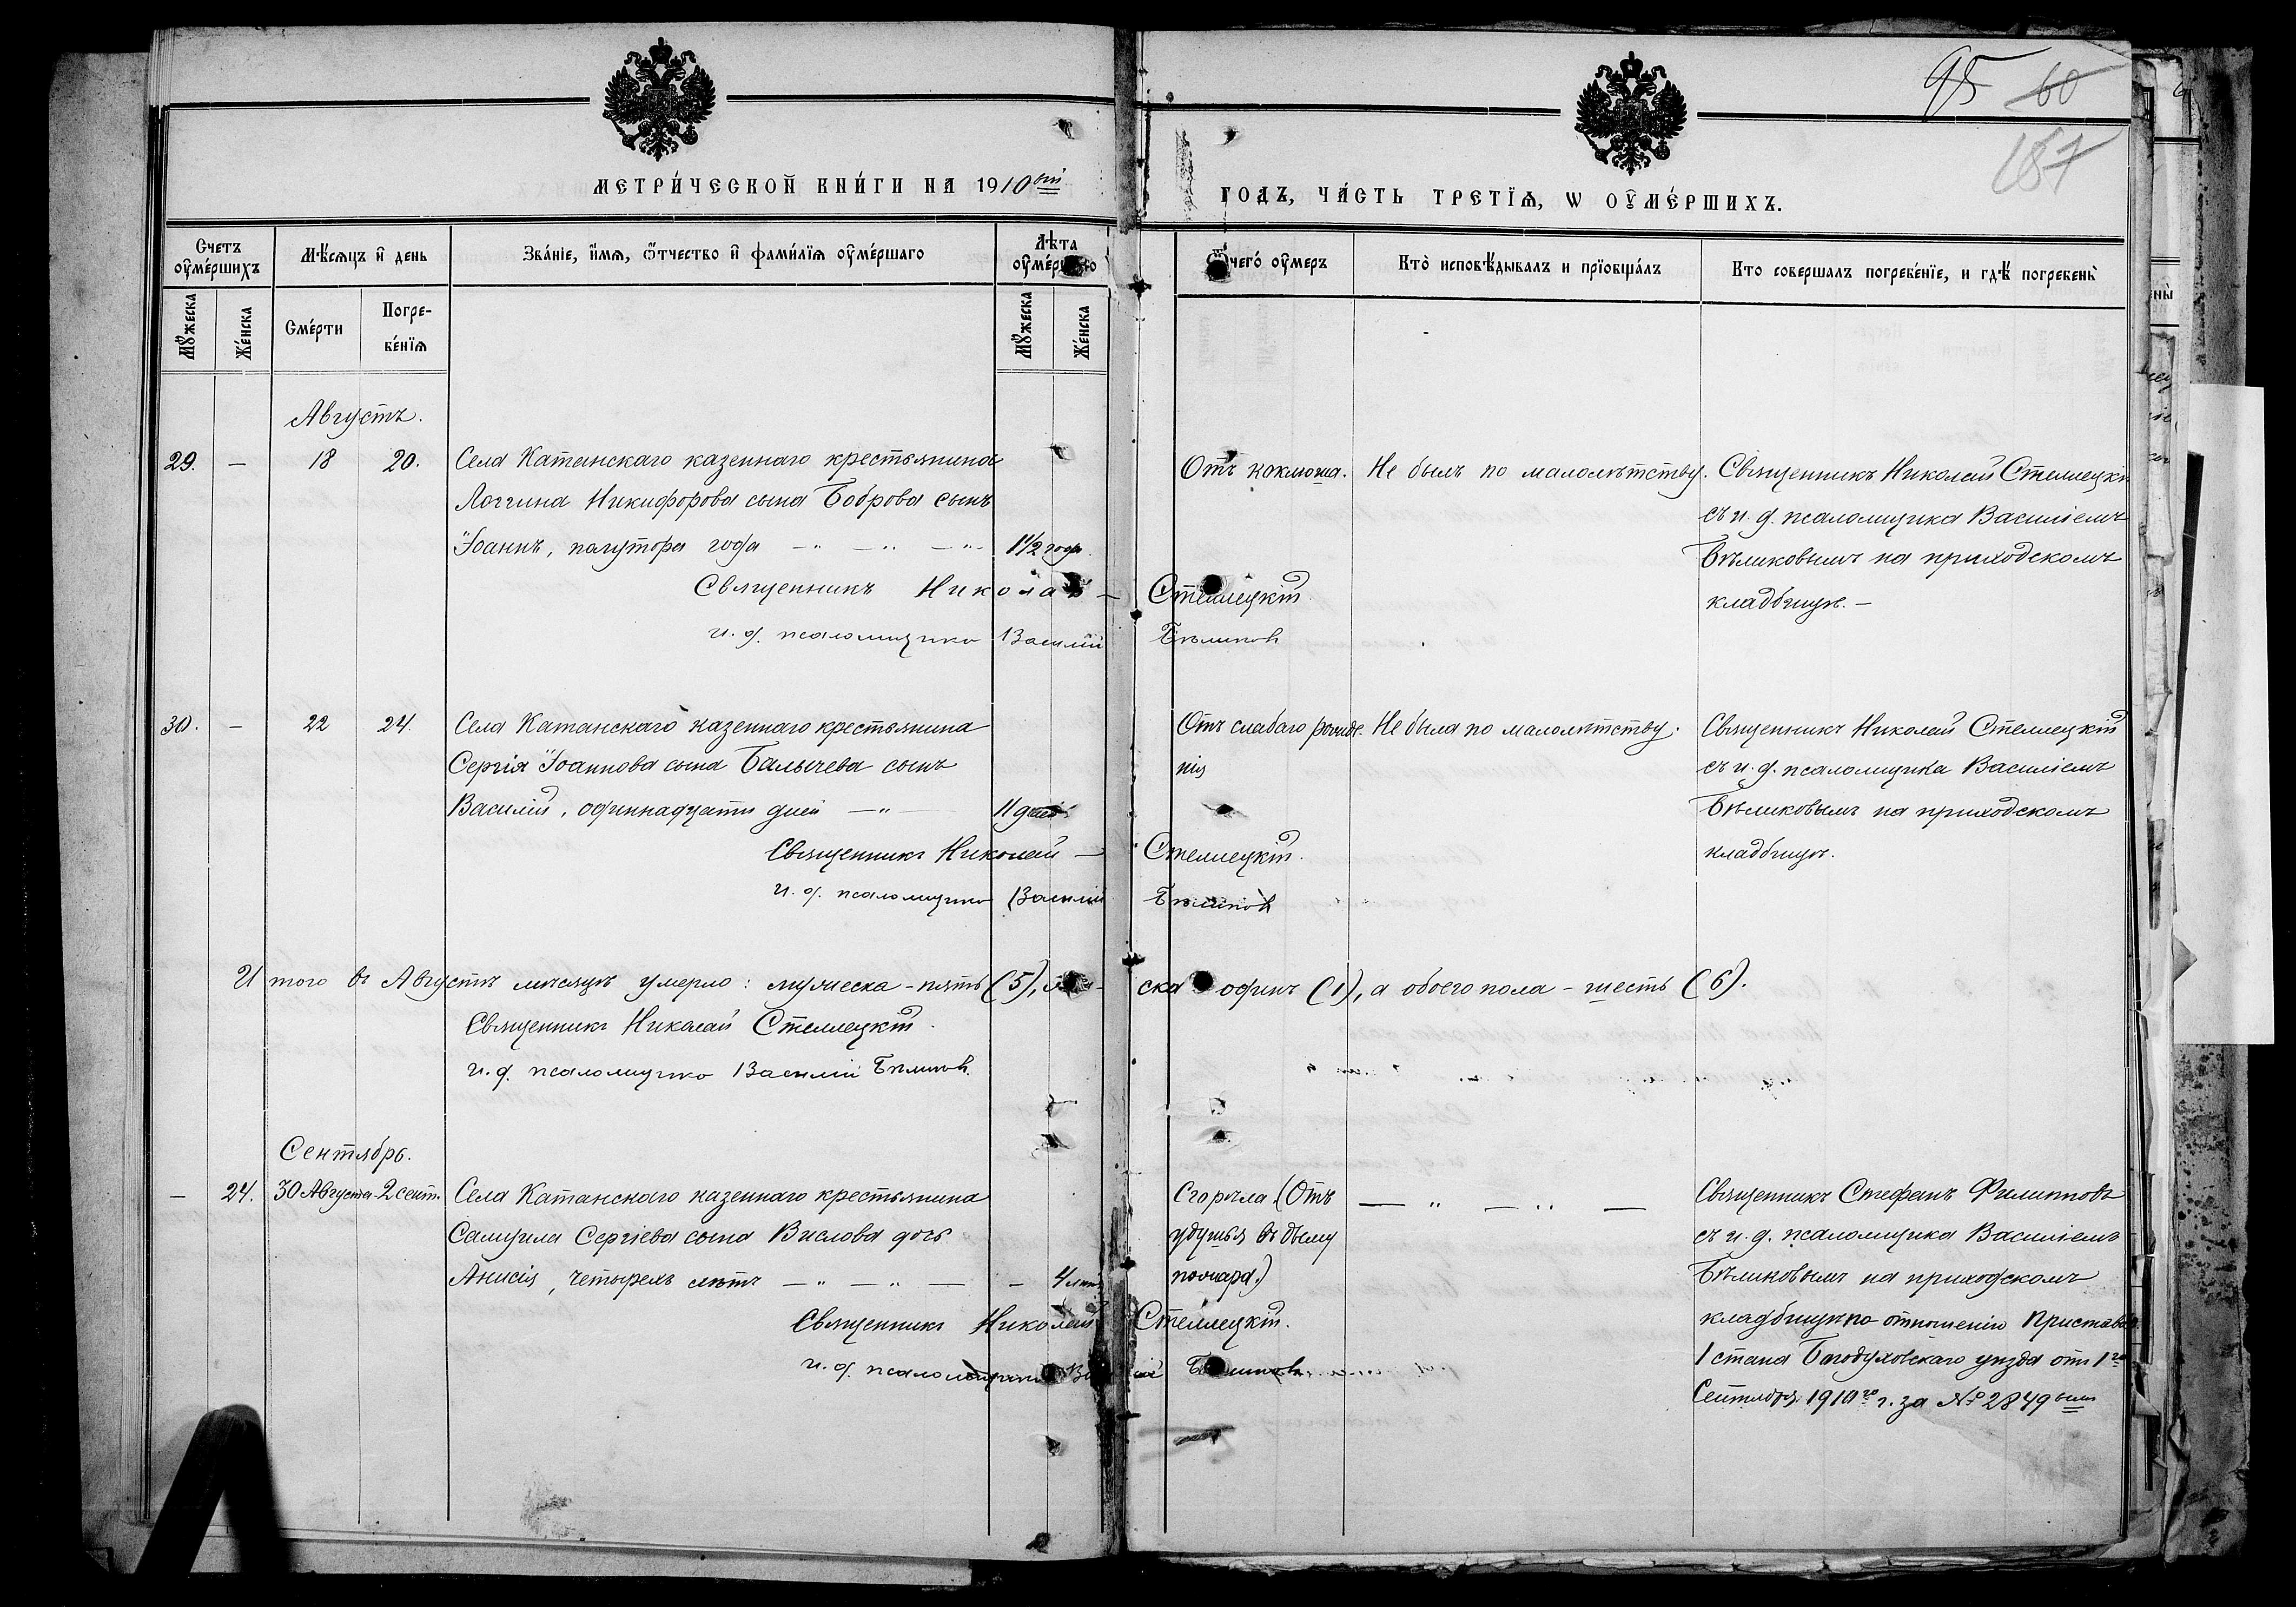 95 60
187
МЕТРИ́ЧЕСКОЙ КНИ́ГИ НА 1910ый
ГОДЪ, ЧА́СТЬ ТРЕТЇѦ, Ѡ ОУ҆МЕ́РШИХЪ.
Счетъ оу҆ме́ршихъ
Мꙋ́жеска
Же́нска
Мѣ́сѧцъ и҆ день
Сме́рти
Погребе́нїѧ
Зва́нїе, и҆́мѧ, ѻ҆́тчество и҆ фами́лїѧ оу҆ме́ршаго
Лѣта оу҆ме́ршаго
Мꙋ́жеска
Же́нска
Ѿ чегѡ̀ оу҆меръ
Кто̀ исповѣ́дывалъ и прїобща́лъ
Кто совершалъ погребе́нїе, и гдѣ̀ погребены̀
Августъ.
29. — 18 20.
Села Катанскаго казеннаго крестьянина
Логгина Никифорова сына Боброва сынъ
Іоаннъ, полутора года — " — " — " 1½ года
Отъ коклюша. Не былъ по малолѣтству.
Священникъ Николай Стеллецкій
съ и. д. псаломщика Василіемъ
Бѣликовымъ на приходскомъ
кладбищѣ. —
Священникъ Николай — Стеллецкій
и. д. псаломщика Василій Бѣликовъ
30. — 22 24.
Села Катанскаго казеннаго крестьянина
Сергія Іоаннова сына Балычева сынъ
Василій, одиннадцати дней — " — 11 дней
Отъ слабаго рожде- Не былъ по малолѣтству.
нія
Священникъ Николай Стеллецкій
съ и. д. псаломщика Василіемъ
Бѣликовымъ на приходскомъ
кладбищѣ.
Священникъ Николай — Стеллецкій.
и. д. псаломщика Василій Бѣликовъ
Итого въ Августѣ мѣсяцѣ умерло: мужеска - пять (5), жен- ска одинъ (1), а обоего пола - шесть (6).
Священникъ Николай Стеллецкій.
и. д. псаломщика Василій Бѣликовъ.
Сентябрь.
— 24. 30 Августа 2 сент.
Села Катанскаго казеннаго крестьянина
Самуила Сергіева сына Вислова дочь
Анисія, четырехъ лѣтъ — " — " — — 4 лѣтъ
Сгорѣла (Отъ — " — " —
удушья въ дыму
пожара.)
Священникъ Стефанъ Филипповъ
съ и. д. псаломщика Василіемъ
Бѣликовымъ на приходскомъ
кладбищѣ по отношенію Пристава
1 стана Богодуховскаго уѣзда отъ 1го
Сентября 1910го г. за № 2849ымъ
Священникъ Николай Стеллецкій.
и. д. псаломщика Василій Бѣликовъ